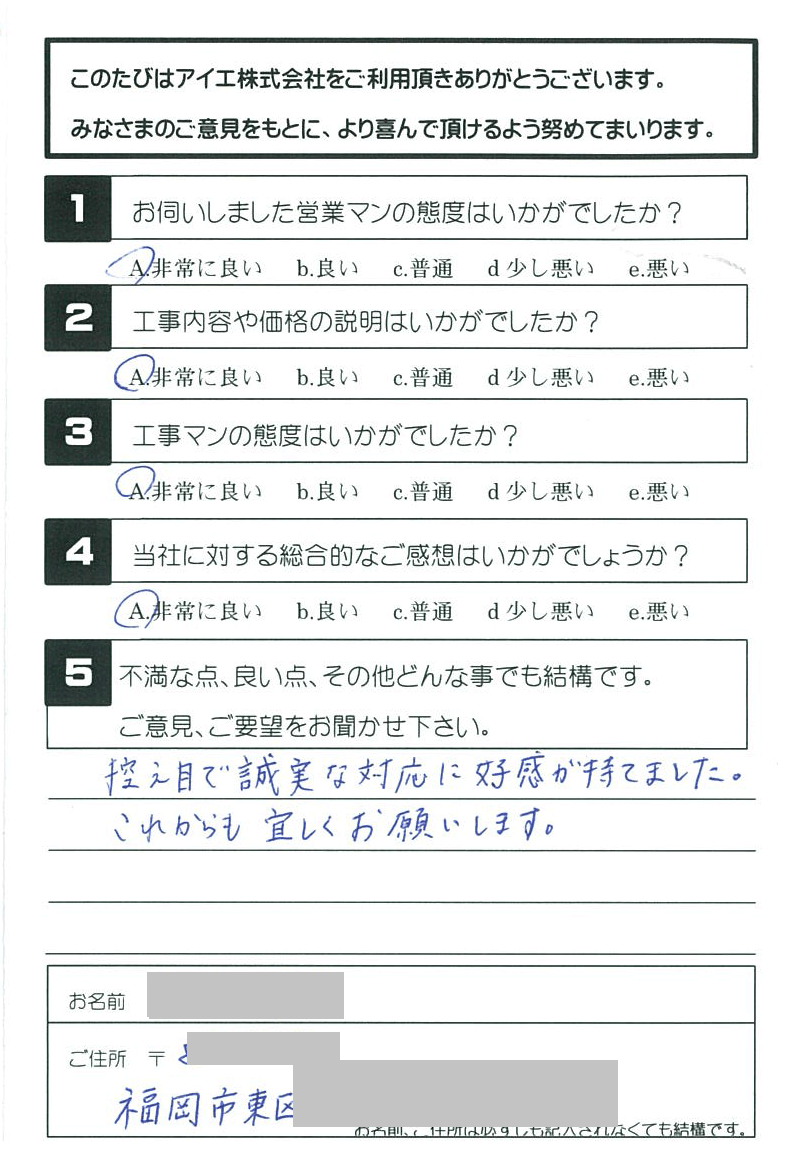 このたびはアイエ株式会社をご利用頂きありがとうございます。
みなさまのご意見をもとに、より喜んで頂けるよう努めてまいります。
1 お伺いしました営業マンの態度はいかがでしたか？
A.非常に良い b.良い c.普通 d 少し悪い e.悪い
2 工事内容や価格の説明はいかがでしたか？
A.非常に良い b.良い c.普通 d 少し悪い e.悪い
3 工事マンの態度はいかがでしたか？
A.非常に良い b.良い c.普通 d 少し悪い e.悪い
4 当社に対する総合的なご感想はいかがでしょうか？
A.非常に良い b.良い c.普通 d 少し悪い e.悪い
5 不満な点、良い点、その他どんな事でも結構です。
ご意見、ご要望をお聞かせ下さい。
控え目で誠実な対応に好感が持てました。
これからも宜しくお願いします。
お名前
ご住所 〒
福岡市東区
お名前、ご住所は必ずしも記入されなくても結構です。